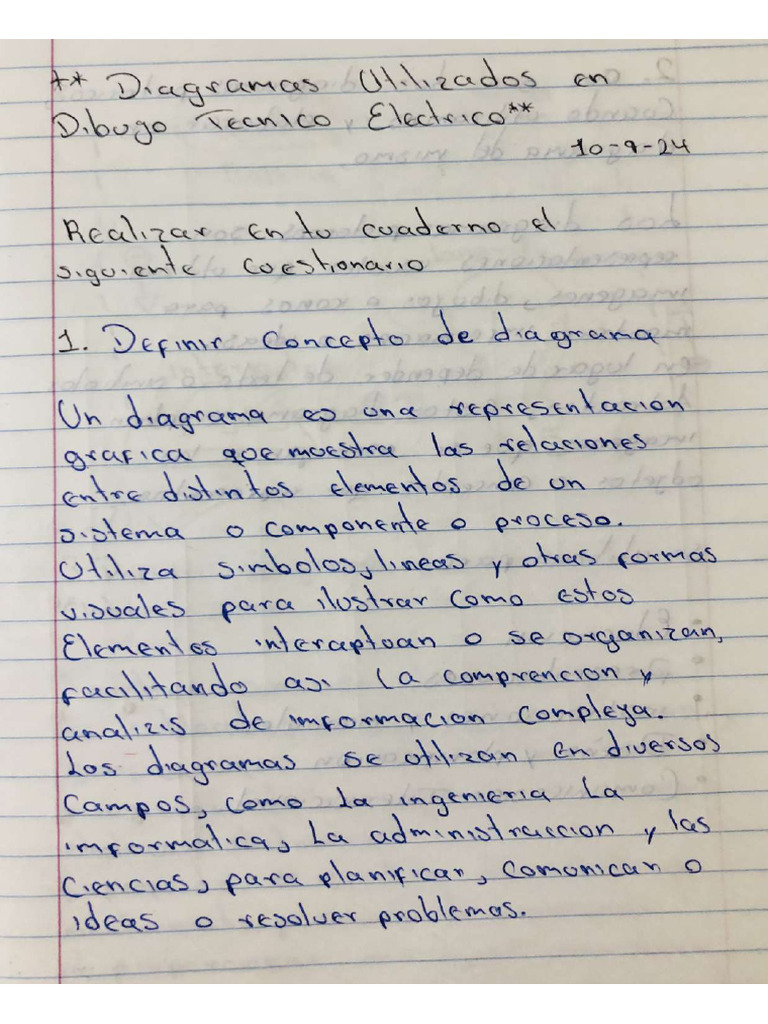 ** Diagramas Utilizados en
Dibugo Tecnico Electrico**
10-9-24
Realizar en tu cuaderno el
siguiente cuestionario
1. Definir Concepto de diagrama
Un diagrama es una representacion
grafica que muestra las relaciones
entre distintos elementos de un
sistema o componente o proceso.
Utiliza simbolos, lineas y otras formas
visuales para ilustrar como estos
Elementos interaptuan o se organizan,
facilitando asi la comprencion y
analizis de informacion compleya.
Los diagramas se utilizan en diversos
Campos, como La ingenieria La
informatica, La administraccion y las
Ciencias, para planificar, comunicar o
ideas o resolver problemas.